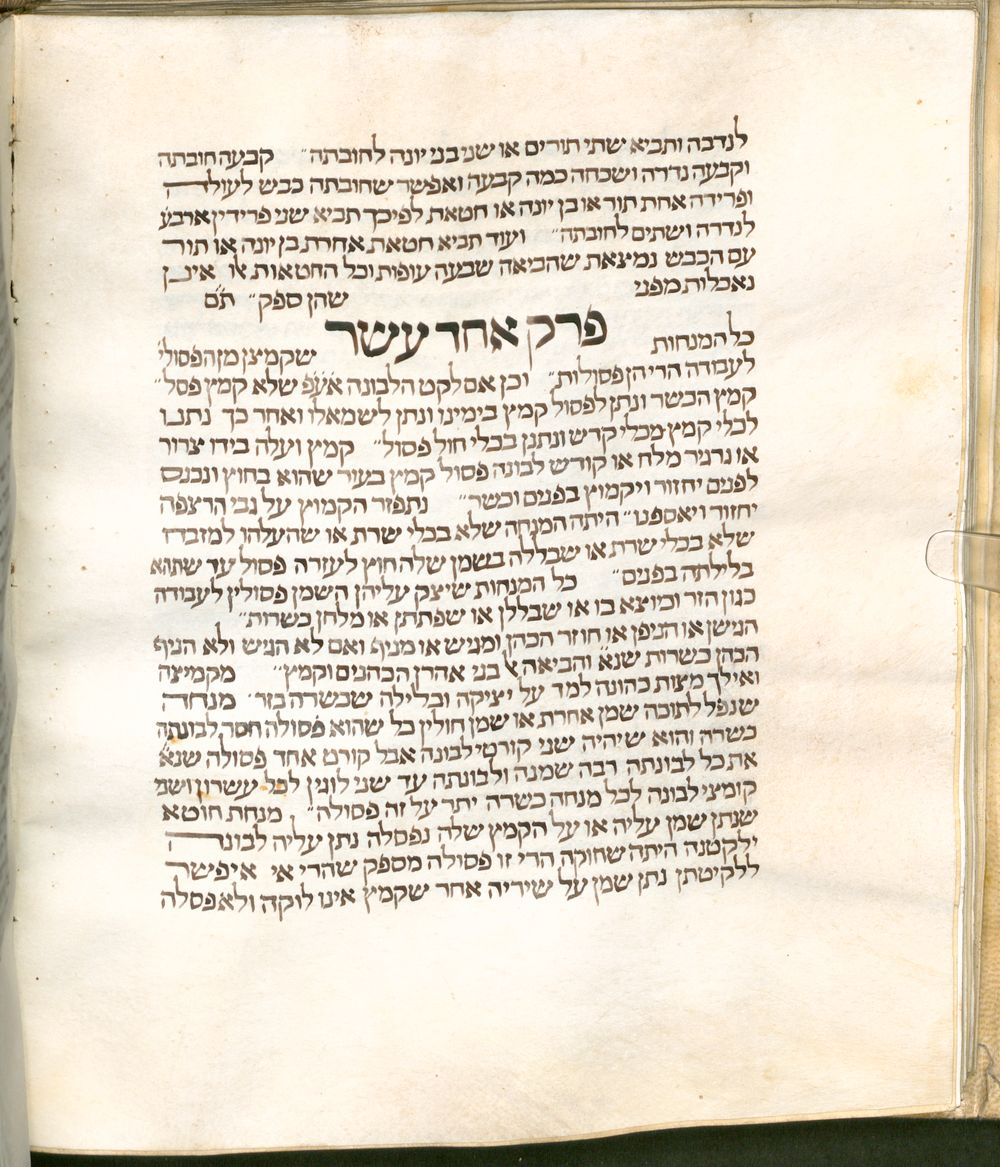 לנדבה ותביא שתי תורים או שני בני יונה לחובתה״ קבעה חובתה
וקבעה נדרה ושכחה כמה קבעה ואפשר שחובתה כבש לעולה
ופרידה אחת תור או בן יונה או חטאת לפיכך תביא שני פרידין ארבע
לנדרה ושתים לחובתה״ ועוד תביא חטאת אחרת בן יונה או תור
עם הכבש נמצאת שהביאה שבעה עופות וכל החטאות לו אינן
נאכלות מפני שהן ספק״ ת̇ם̇
פרק אחד עשר
כל המנחות שקמצן מן הפסולי׳
לעבודה הרי הן פסולות״ וכן אם לקט הלבונה אע״פ שלא קמץ פסל״
קמץ הכשר ונתן לפסול קמץ בימינו ונתן לשמאלו ואחר כך נתנו
לכלי קמץ מכלי קדש ונתנן בכלי חול פסול״ קמץ ועלה בידו צרור
או גרגיר מלח או קורדש לבונה פסול קמץ בעיר שהוא בחוץ ונכנס
לפנים יחזור ויקמוץ בפנים וכשר״ נתפזר הקמוץ על גבי הרצפה
יחזור ויאספנו״ היתה המנחה שלא בכלי שרת או שהעלהו למזבח
שלא בכלי שרת או שבללה בשמן שלה חוץ לעזרה פסול עד שתהא
בלילתה בפנים״ כל המנחות שיצק עליהן השמן פסולין לעבודה
כגון הזר וכיוצא בו או שבללן או שפתתן או מלחן כשרות״
הגישן או הניפן או חוזר הכהן ומגיש או מניף ואם לא הגיש ולא הניף
הכהן כשרות שנא׳ והביאה אל בני אהרן הכהנים וקמץ״ מקמיצה
ואילך מצות כהונה למד על יציקה ובלילה שכשרה בזר׳ מנחה
שנפל לתוכה שמן אחרת או שמן חולין כל שהוא פסולה חסר לבונתה
כשרה והוא שיהיה שני קורטי לבונה אבל קורט אחד פסולה שנא׳
את כל לבונתה רבה שמנה ולבונתה עד שני לוגין לכל עשרון ושני
קומצי לבונה לכל מנחה כשרה יתר על זה פסולה״ מנחת חוטא
שנתן שמן עליה או על הקמץ שלה נפסלה נתן עליה לבונה
ילקטנה היתה שחוקה הרי זו פסולה מספק שהרי אי איפשר
ללקיטתן נתן שמן על שיריה אחר שקמץ אינו לוקה ולא פסלה